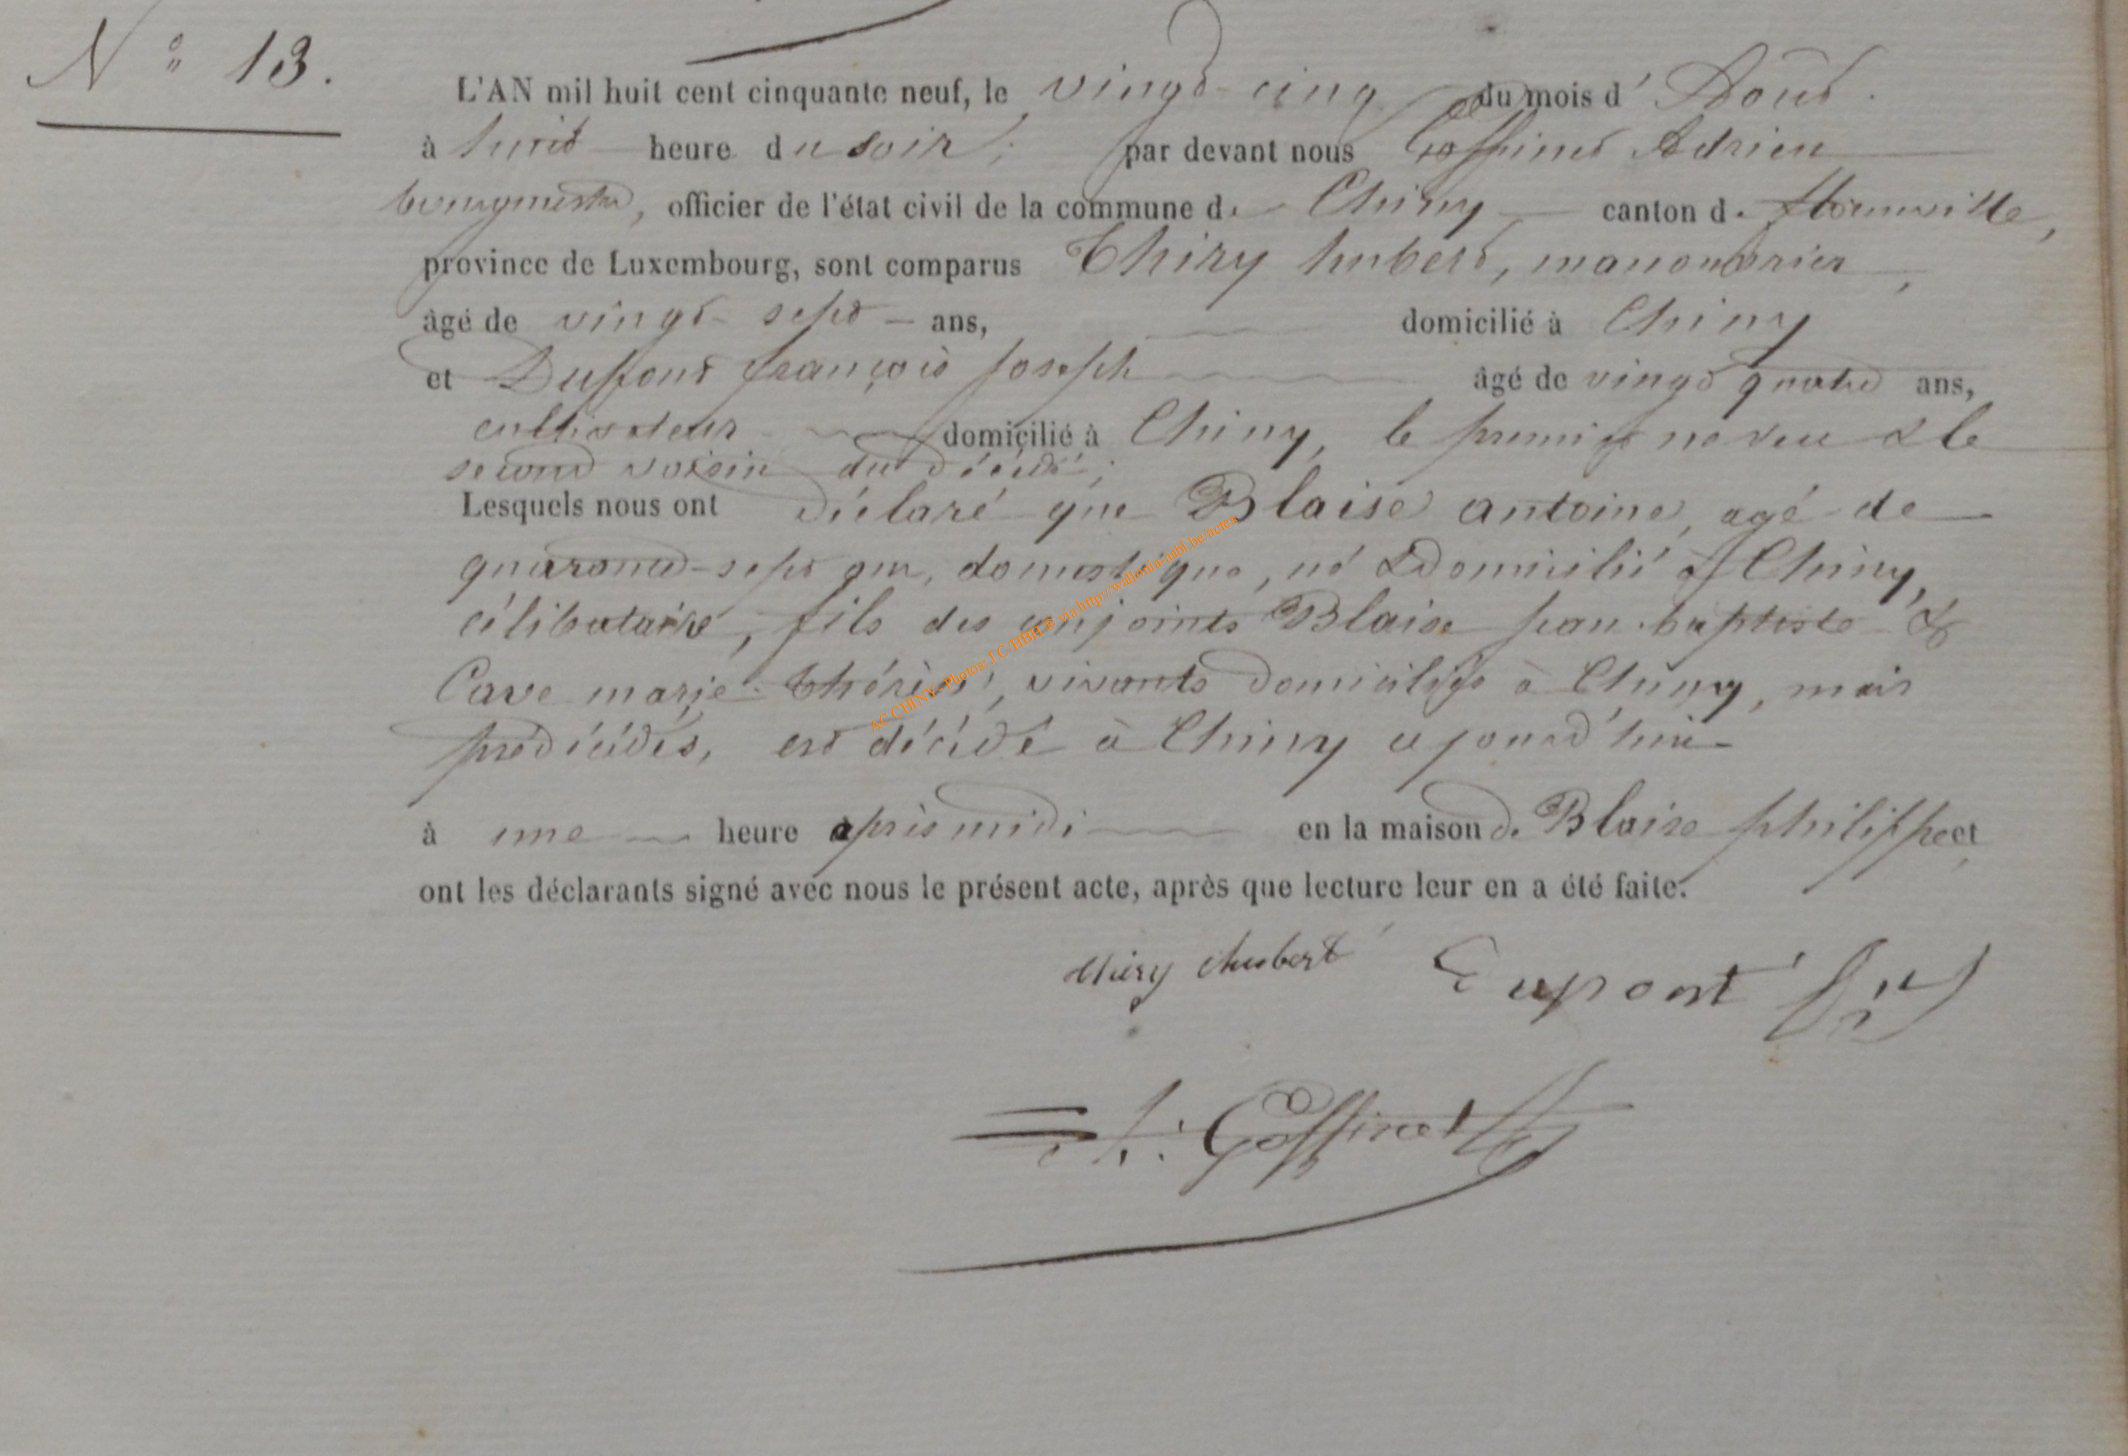 N° 13.
L'AN mil huit cent cinquante neuf, le vingt-cinq du mois d'Aout.
à huit heure du soir; par devant nous Goffinet Adrien
bourgmestre, officier de l'état civil de la commune de Chiny canton de florenville,
province de Luxembourg, sont comparus Thiry hubert, manouvrier,
âgé de vingt-sept ans, domicilié à Chiny
et Dupont françois joseph âgé de vingt quatre ans,
cultivateur domicilié à Chiny, le premier neveu & le
second voisin du décédé;
Lesquels nous ont déclaré que Blaise antoine, agé de
quarante-sept ans, domestique, né & domicilié à Chiny,
célibataire, fils des conjoints Blaise jean-baptiste &
Cave marie-thérèse, vivants domiciliés à Chiny, mais
prédécédés, est décédé à Chiny cejourd'hui
à une heure après midi en la maison de Blaise philippe et
ont les déclarants signé avec nous le présent acte, après que lecture leur en a été faite.
thiry hubert Dupont
A. Goffinet
AC CHINY - Photog. via http://wallonia-asbl.be/actes